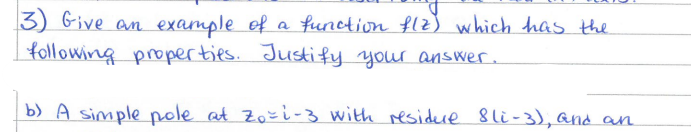 3) Give an example of a function f(z) which has the
following properties. Justify your answer.
b) A simple pole at z₀=i-3 with residue 8(i-3), and an